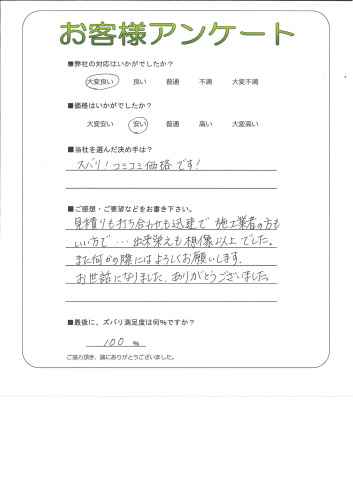 お客様アンケート
■弊社の対応はいかがでしたか？
大変良い 良い 普通 不満 大変不満
■価格はいかがでしたか？
大変安い 安い 普通 高い 大変高い
■当社を選んだ決め手は？
ズバリ！コミコミ価格です！
■ご感想・ご要望などをお書き下さい。
見積りも打ち合わせも迅速で 施工業者の方も
いい方で…出来栄えも想像以上でした。
また何かの際にはよろしくお願いします。
お世話になりました。ありがとうございました。
■最後に、ズバリ満足度は何％ですか？
100 ％
ご協力頂き、誠にありがとうございました。